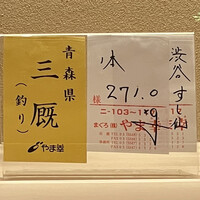 青森県
三厩
(釣り)
やま幸
渋谷 すし
本
271.0
様
二-103-1
まぐろ(株) やま幸